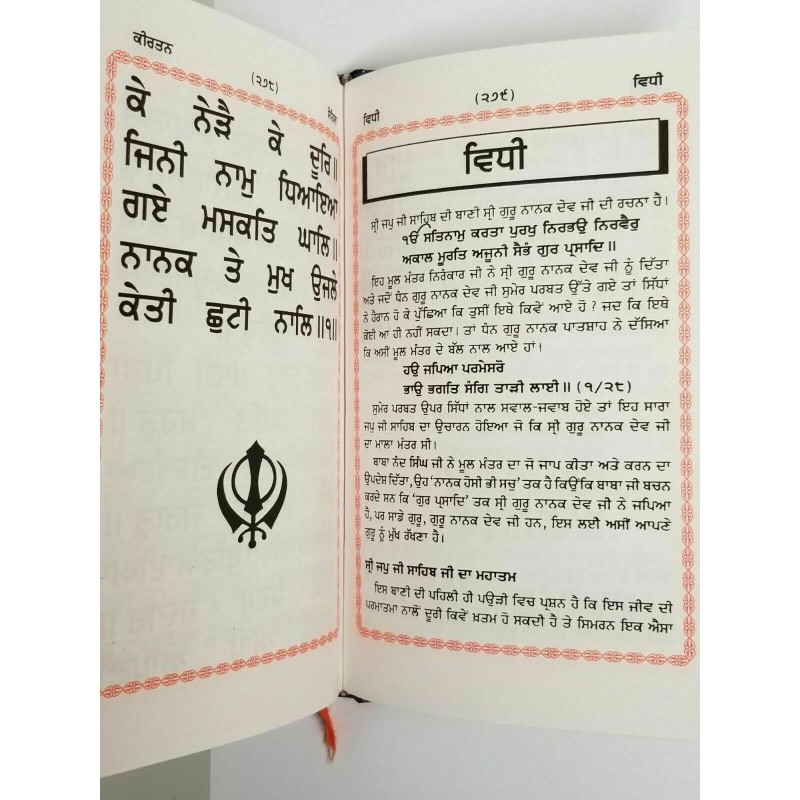 ਕੀਰਤਨ
(੨੭੮)
ਕੇ ਨੇੜੈ ਕੇ ਦੂਰਿ॥
ਜਿਨੀ ਨਾਮੁ ਧਿਆਇਆ
ਗਏ ਮਸਕਤਿ ਘਾਲਿ॥
ਨਾਨਕ ਤੇ ਮੁਖ ਉਜਲੇ
ਕੇਤੀ ਛੁਟੀ ਨਾਲਿ॥੧॥
(੨੭੯)
ਵਿਧੀ
ਵਿਧੀ
ਵਿਧੀ
ਸ੍ਰੀ ਜਪੁ ਜੀ ਸਾਹਿਬ ਦੀ ਬਾਣੀ ਸ੍ਰੀ ਗੁਰੂ ਨਾਨਕ ਦੇਵ ਜੀ ਦੀ ਰਚਨਾ ਹੈ।
ੴ ਸਤਿਨਾਮੁ ਕਰਤਾ ਪੁਰਖੁ ਨਿਰਭਉ ਨਿਰਵੈਰੁ
ਅਕਾਲ ਮੂਰਤਿ ਅਜੂਨੀ ਸੈਭੰ ਗੁਰ ਪ੍ਰਸਾਦਿ॥
ਇਹ ਮੂਲ ਮੰਤਰ ਨਿਰੰਕਾਰ ਜੀ ਨੇ ਸ੍ਰੀ ਗੁਰੂ ਨਾਨਕ ਦੇਵ ਜੀ ਨੂੰ ਦਿੱਤਾ
ਅਤੇ ਜਦੋਂ ਧੰਨ ਗੁਰੂ ਨਾਨਕ ਦੇਵ ਜੀ ਸੁਮੇਰ ਪਰਬਤ ਉੱਤੇ ਗਏ ਤਾਂ ਸਿੱਧਾਂ
ਨੇ ਹੈਰਾਨ ਹੋ ਕੇ ਪੁੱਛਿਆ ਕਿ ਤੁਸੀਂ ਇਥੇ ਕਿਵੇਂ ਆਏ ਹੋ ? ਜਦ ਕਿ ਇਥੇ
ਕੋਈ ਆ ਹੀ ਨਹੀਂ ਸਕਦਾ। ਤਾਂ ਧੰਨ ਗੁਰੂ ਨਾਨਕ ਪਾਤਸ਼ਾਹ ਨੇ ਦੱਸਿਆ
ਕਿ ਅਸੀਂ ਮੂਲ ਮੰਤਰ ਦੇ ਬੱਲ ਨਾਲ ਆਏ ਹਾਂ।
ਹਉ ਜਪਿਆ ਪਰਮੇਸਰੋ
ਭਾਉ ਭਗਤਿ ਸੰਗਿ ਤਾੜੀ ਲਾਈ॥ (੧/੨੮)
ਸੁਮੇਰ ਪਰਬਤ ਉਪਰ ਸਿੱਧਾਂ ਨਾਲ ਸਵਾਲ-ਜਵਾਬ ਹੋਏ ਤਾਂ ਇਹ ਸਾਰਾ
ਜਪੁ ਜੀ ਸਾਹਿਬ ਦਾ ਉਚਾਰਨ ਹੋਇਆ ਜੋ ਕਿ ਸ੍ਰੀ ਗੁਰੂ ਨਾਨਕ ਦੇਵ ਜੀ
ਦਾ ਮਾਲਾ ਮੰਤਰ ਸੀ।
ਬਾਬਾ ਨੰਦ ਸਿੰਘ ਜੀ ਨੇ ਮੂਲ ਮੰਤਰ ਦਾ ਜੋ ਜਾਪ ਕੀਤਾ ਅਤੇ ਕਰਨ ਦਾ
ਉਪਦੇਸ਼ ਦਿੱਤਾ, ਉਹ 'ਨਾਨਕ ਹੋਸੀ ਭੀ ਸਚੁ' ਤਕ ਹੈ ਕਿਉਂਕਿ ਬਾਬਾ ਜੀ ਬਚਨ
ਕਰਦੇ ਸਨ ਕਿ 'ਗੁਰ ਪ੍ਰਸਾਦਿ' ਤਕ ਸ੍ਰੀ ਗੁਰੂ ਨਾਨਕ ਦੇਵ ਜੀ ਨੇ ਜਪਿਆ
ਹੈ, ਪਰ ਸਾਡੇ ਗੁਰੂ, ਗੁਰੂ ਨਾਨਕ ਦੇਵ ਜੀ ਹਨ, ਇਸ ਲਈ ਅਸੀਂ ਆਪਣੇ
ਗੁਰੂ ਨੂੰ ਮੁੱਖ ਰੱਖਣਾ ਹੈ।
ਸ੍ਰੀ ਜਪੁ ਜੀ ਸਾਹਿਬ ਜੀ ਦਾ ਮਹਾਤਮ
ਇਸ ਬਾਣੀ ਦੀ ਪਹਿਲੀ ਹੀ ਪਉੜੀ ਵਿਚ ਪ੍ਰਸ਼ਨ ਹੈ ਕਿ ਇਸ ਜੀਵ ਦੀ
ਪਰਮਾਤਮਾ ਨਾਲੋਂ ਦੂਰੀ ਕਿਵੇਂ ਖ਼ਤਮ ਹੋ ਸਕਦੀ ਹੈ ਤੇ ਸਿਮਰਨ ਇਕ ਐਸਾ